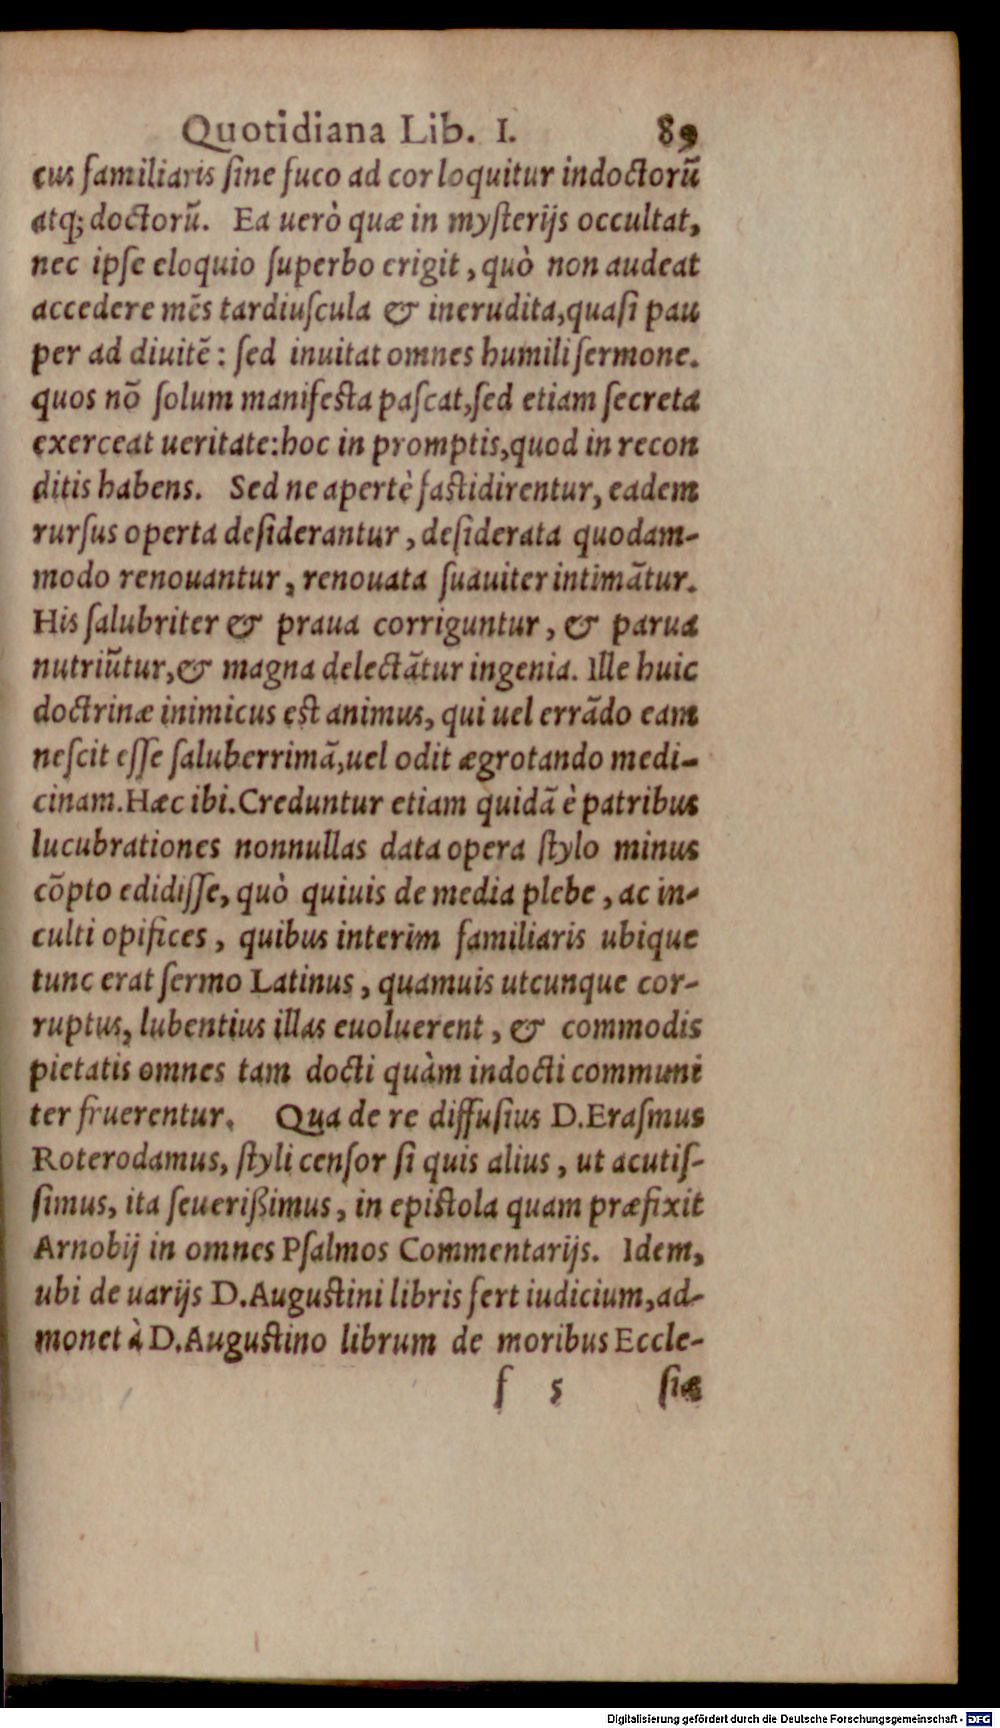 Quotidiana Lib. I. 89
cus familiaris ſine fuco ad cor loquitur indoctorũ
atq; doctorũ. Ea uerò quæ in myſterijs occultat,
nec ipſe eloquio ſuperbo erigit, quò non audeat
accedere mẽs tardiuſcula & inerudita, quaſi pau
per ad diuitẽ: ſed inuitat omnes humili ſermone.
quos nõ ſolum manifeſta paſcat, ſed etiam ſecreta
exerceat ueritate: hoc in promptis, quod in recon
ditis habens. Sed ne apertè faſtidirentur, eadem
rurſus operta deſiderantur, deſiderata quodam-
modo renouantur, renouata ſuauiter intimãtur.
His ſalubriter & praua corriguntur, & parua
nutriũtur, & magna delectãtur ingenia. Ille huic
doctrinæ inimicus eſt animus, qui uel errãdo eam
neſcit eſſe ſaluberrimã, uel odit ægrotando medi-
cinam. Hæc ibi. Creduntur etiam quidã è patribus
lucubrationes nonnullas data opera ſtylo minus
cõpto edidiſſe, quò quiuis de media plebe, ac in-
culti opifices, quibus interim familiaris ubique
tunc erat ſermo Latinus, quamuis utcunque cor-
ruptus, lubentius illas euoluerent, & commodis
pietatis omnes tam docti quàm indocti communi
ter fruerentur. Qua de re diffuſius D. Eraſmus
Roterodamus, ſtyli cenſor ſi quis alius, ut acutiſ-
ſimus, ita ſeuerißimus, in epiſtola quam præfixit
Arnobij in omnes Pſalmos Commentarijs. Idem,
ubi de uarijs D. Auguſtini libris fert iudicium, ad-
monet à D. Auguſtino librum de moribus Eccle-
f 5 ſiæ
Digitalisierung gefördert durch die Deutsche Forschungsgemeinschaft - DFG